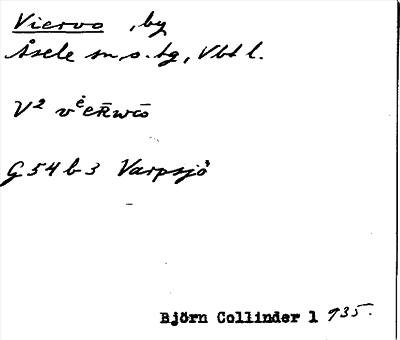 Viervo, by
Åsele sn, o. tg, Vbt l.
V²
G 54 b 3 Varpsjö
Björn Collinder 1935.